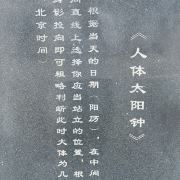 《人体太阳钟》
根据当天的日期（阳历），在中间
直线上选择你应当站立的位置，根
身影投向即可粗略判断此时大体为几
北京时间）